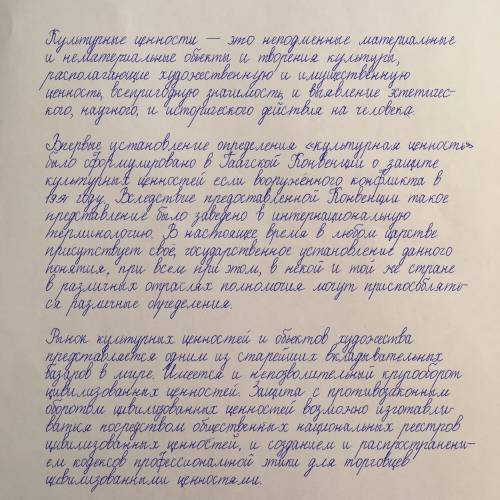 Культурные ценности — это неподменные материальные
и нематериальные объекты и творения культуры,
располагающие художественную и имущественную
ценность, всепригодную значимость, и выявление эстетичес-
кого, научного, и исторического действия на человека.
Впервые установление определения «культурная ценность»
было сформулировано в Гаагской Конвенции о защите
культурных ценностей если вооружённого конфликта в
1954 году. Вследствие предоставленной Конвенции такое
представление было заведено в интернациональную
терминологию. В настоящее время в любом царстве
присутствует своё, государственное установление данного
понятия, при всем при этом, в некой и той же стране
в различных отраслях полномочия могут приспособлять-
ся различные определения.
Рынок культурных ценностей и объектов художества
представляется одним из старейших вкладывательных
базаров в мире. Имеется и непозволительный кругооборот
цивилизованных ценностей. Защита с противозаконным
оборотом цивилизованных ценностей возможно изготавли-
ватися посредством общественных национальных реестров
цивилизованных ценностей, и созданием и распространени-
ем кодексов профессиональной этики для торговцев
цивилизованными ценностями.